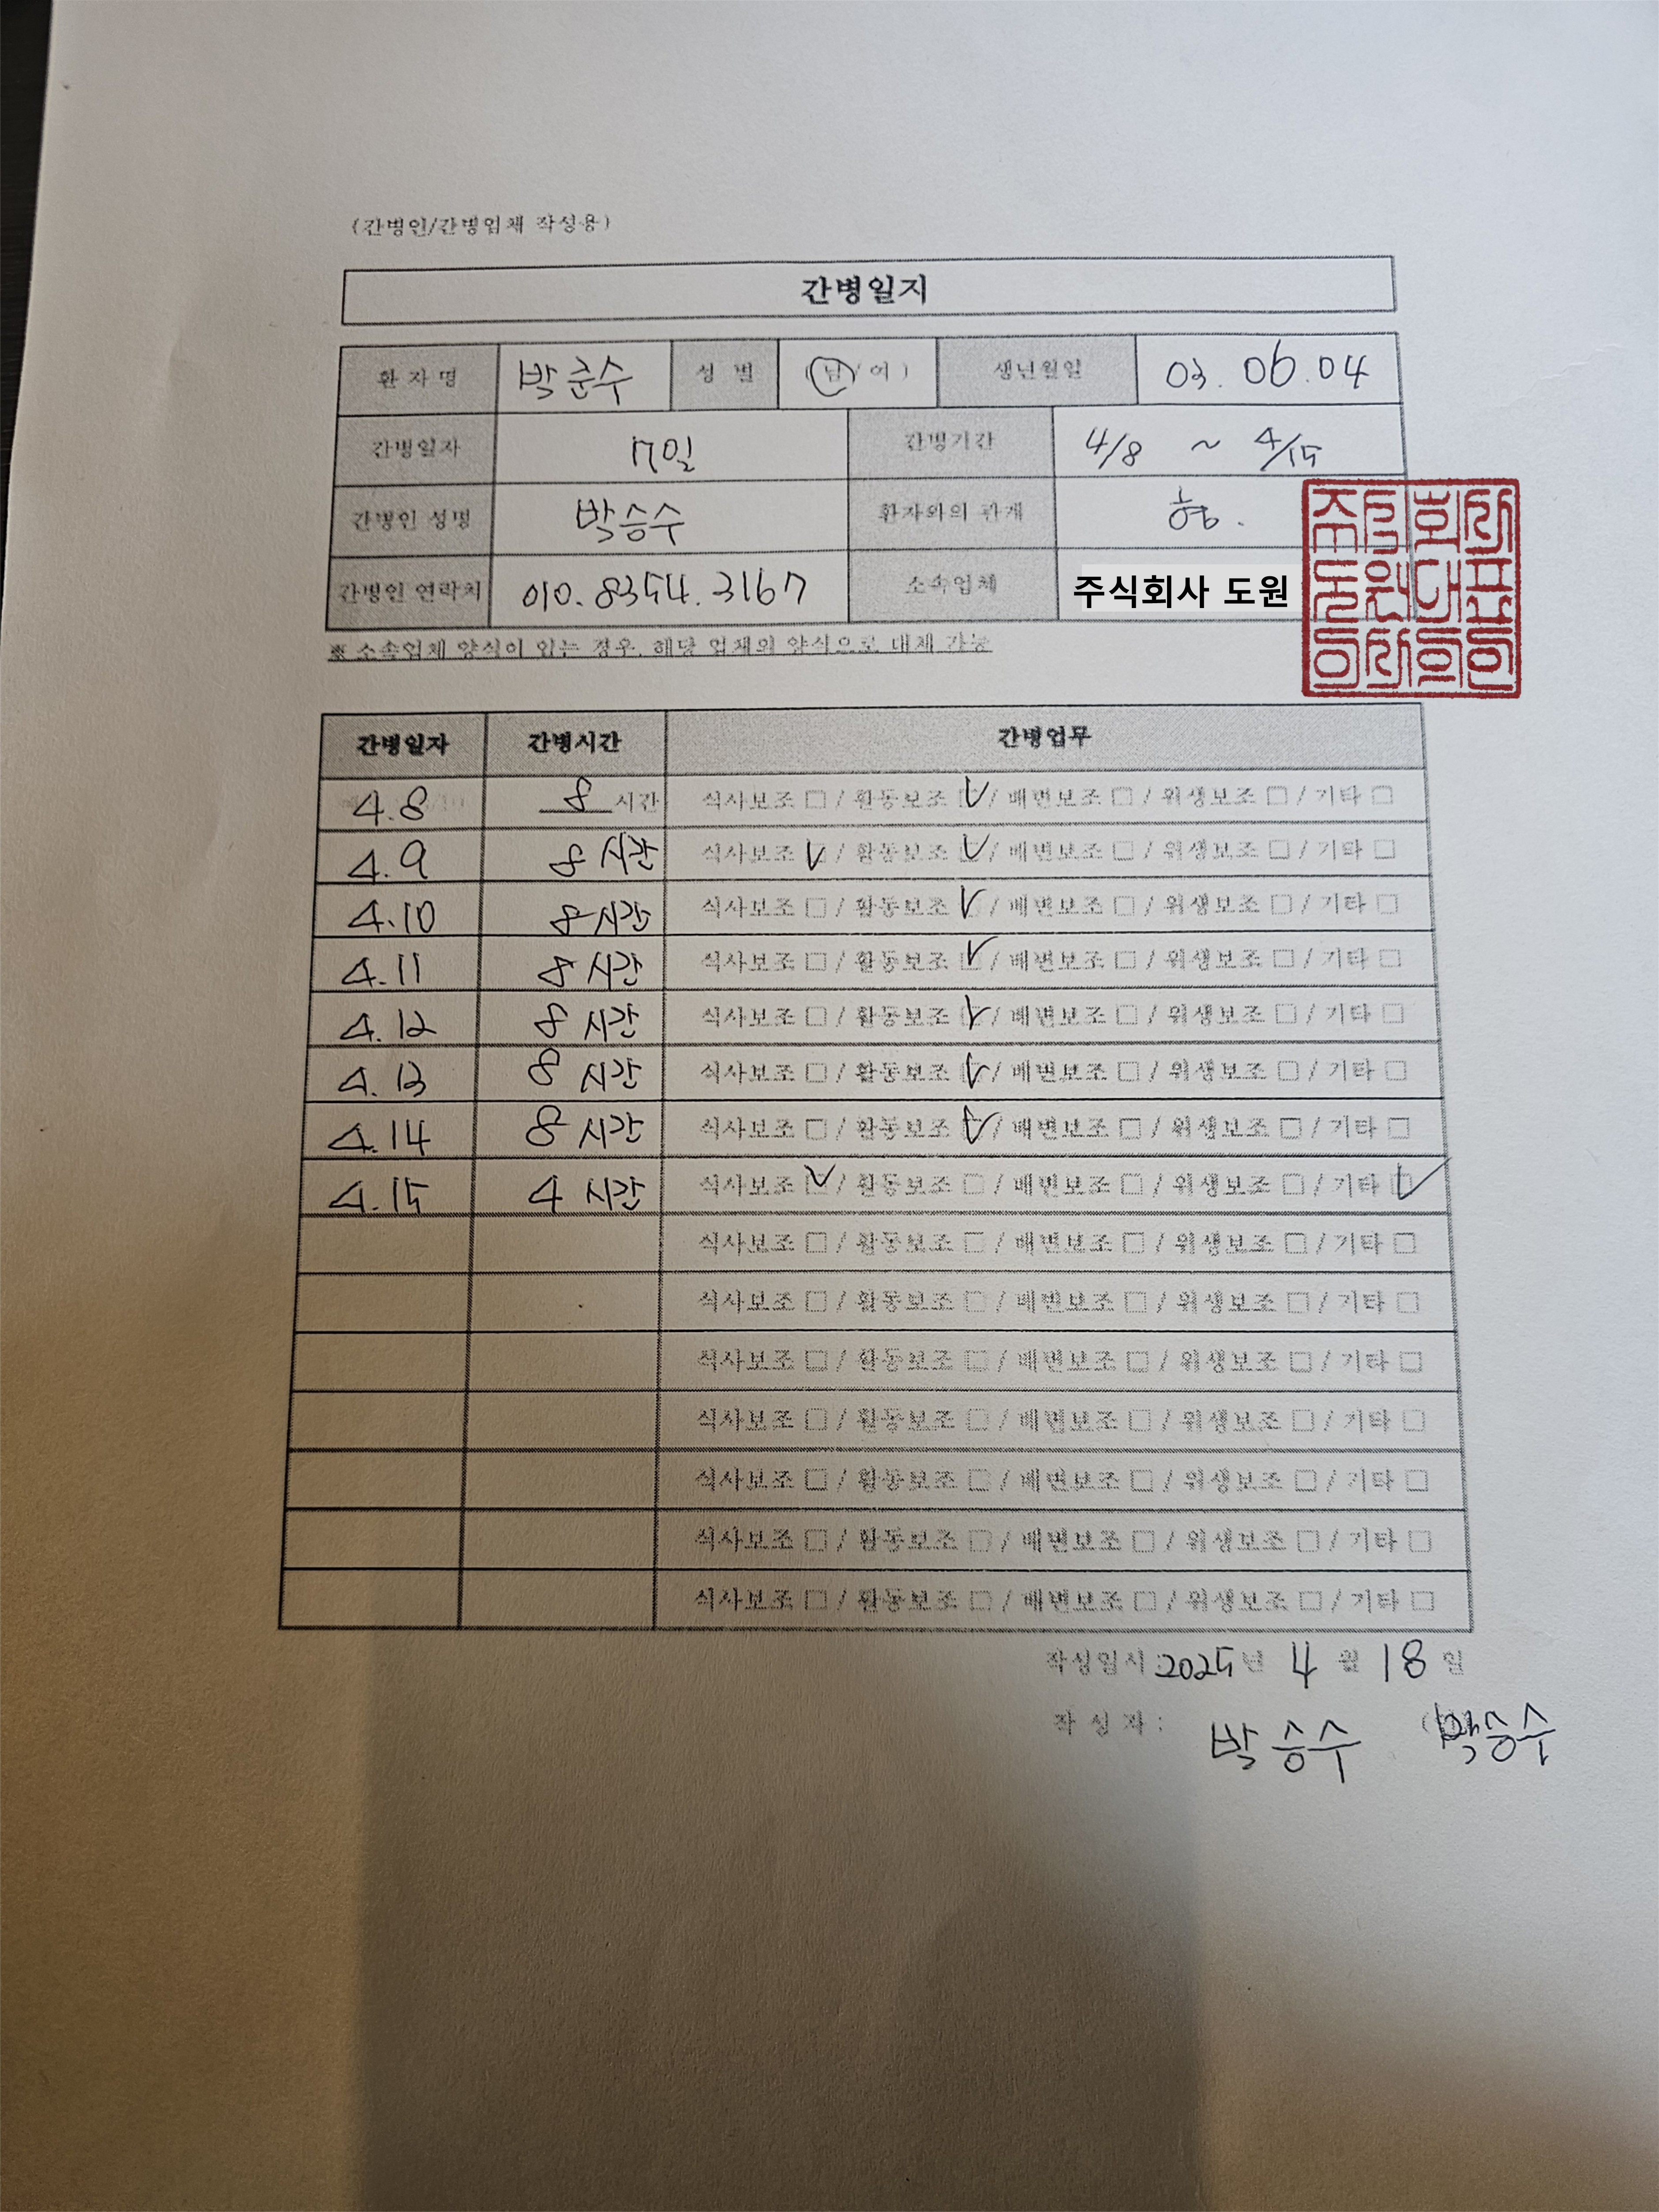 (간병인/간병업체 작성용)
간병일지
환자명 박준수 성별 (남/여) 생년월일 03.06.04
간병일자 7일 간병기간 4/8 ~ 4/15
간병인 성명 박승수 환자와의 관계 형.
간병인 연락처 010.8354.3167 소속업체 주식회사 도원
※ 소속업체 양식이 있는 경우, 해당 업체의 양식으로 대체 가능
간병일자 간병시간 간병업무
4.8 8 시간 식사보조 □ / 활동보조 ☑ / 배변보조 □ / 위생보조 □ / 기타 □
4.9 8 시간 식사보조 ☑ / 활동보조 ☑ / 배변보조 □ / 위생보조 □ / 기타 □
4.10 8 시간 식사보조 □ / 활동보조 ☑ / 배변보조 □ / 위생보조 □ / 기타 □
4.11 8 시간 식사보조 □ / 활동보조 ☑ / 배변보조 □ / 위생보조 □ / 기타 □
4.12 8 시간 식사보조 □ / 활동보조 ☑ / 배변보조 □ / 위생보조 □ / 기타 □
4.13 8 시간 식사보조 □ / 활동보조 ☑ / 배변보조 □ / 위생보조 □ / 기타 □
4.14 8 시간 식사보조 □ / 활동보조 ☑ / 배변보조 □ / 위생보조 □ / 기타 □
4.15 4 시간 식사보조 ☑ / 활동보조 □ / 배변보조 □ / 위생보조 □ / 기타 ☑
식사보조 □ / 활동보조 □ / 배변보조 □ / 위생보조 □ / 기타 □
식사보조 □ / 활동보조 □ / 배변보조 □ / 위생보조 □ / 기타 □
식사보조 □ / 활동보조 □ / 배변보조 □ / 위생보조 □ / 기타 □
식사보조 □ / 활동보조 □ / 배변보조 □ / 위생보조 □ / 기타 □
식사보조 □ / 활동보조 □ / 배변보조 □ / 위생보조 □ / 기타 □
식사보조 □ / 활동보조 □ / 배변보조 □ / 위생보조 □ / 기타 □
식사보조 □ / 활동보조 □ / 배변보조 □ / 위생보조 □ / 기타 □
작성일시 2025년 4 월 18 일
작성자 : 박승수 박승수